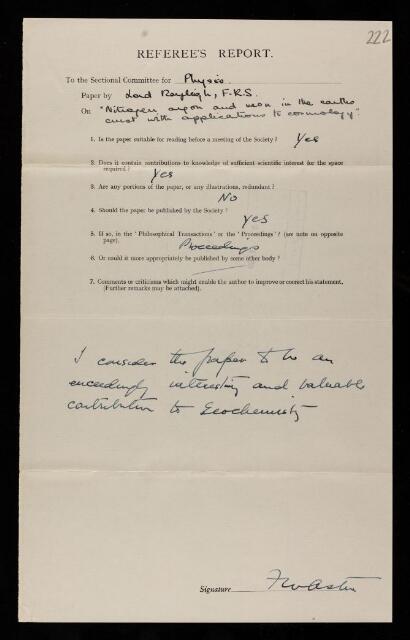 222
REFEREE'S REPORT.
To the Sectional Committee for Physics.
Paper by Lord Rayleigh, F.R.S.
On "Nitrogen argon and neon in the earths
crust with applications to cosmology".
1. Is the paper suitable for reading before a meeting of the Society? Yes
2. Does it contain contributions to knowledge of sufficient scientific interest for the space
required? Yes
3. Are any portions of the paper, or any illustrations, redundant?
No
4. Should the paper be published by the Society?
Yes
5. If so, in the 'Philosophical Transactions' or the 'Proceedings'? (see note on opposite
page). Proceedings
6. Or could it more appropriately be published by some other body?
7. Comments or criticisms which might enable the author to improve or correct his statement.
(Further remarks may be attached).
I consider the paper to be an
exceedingly interesting and valuable
contribution to Geochemistry
Signature F W Aston